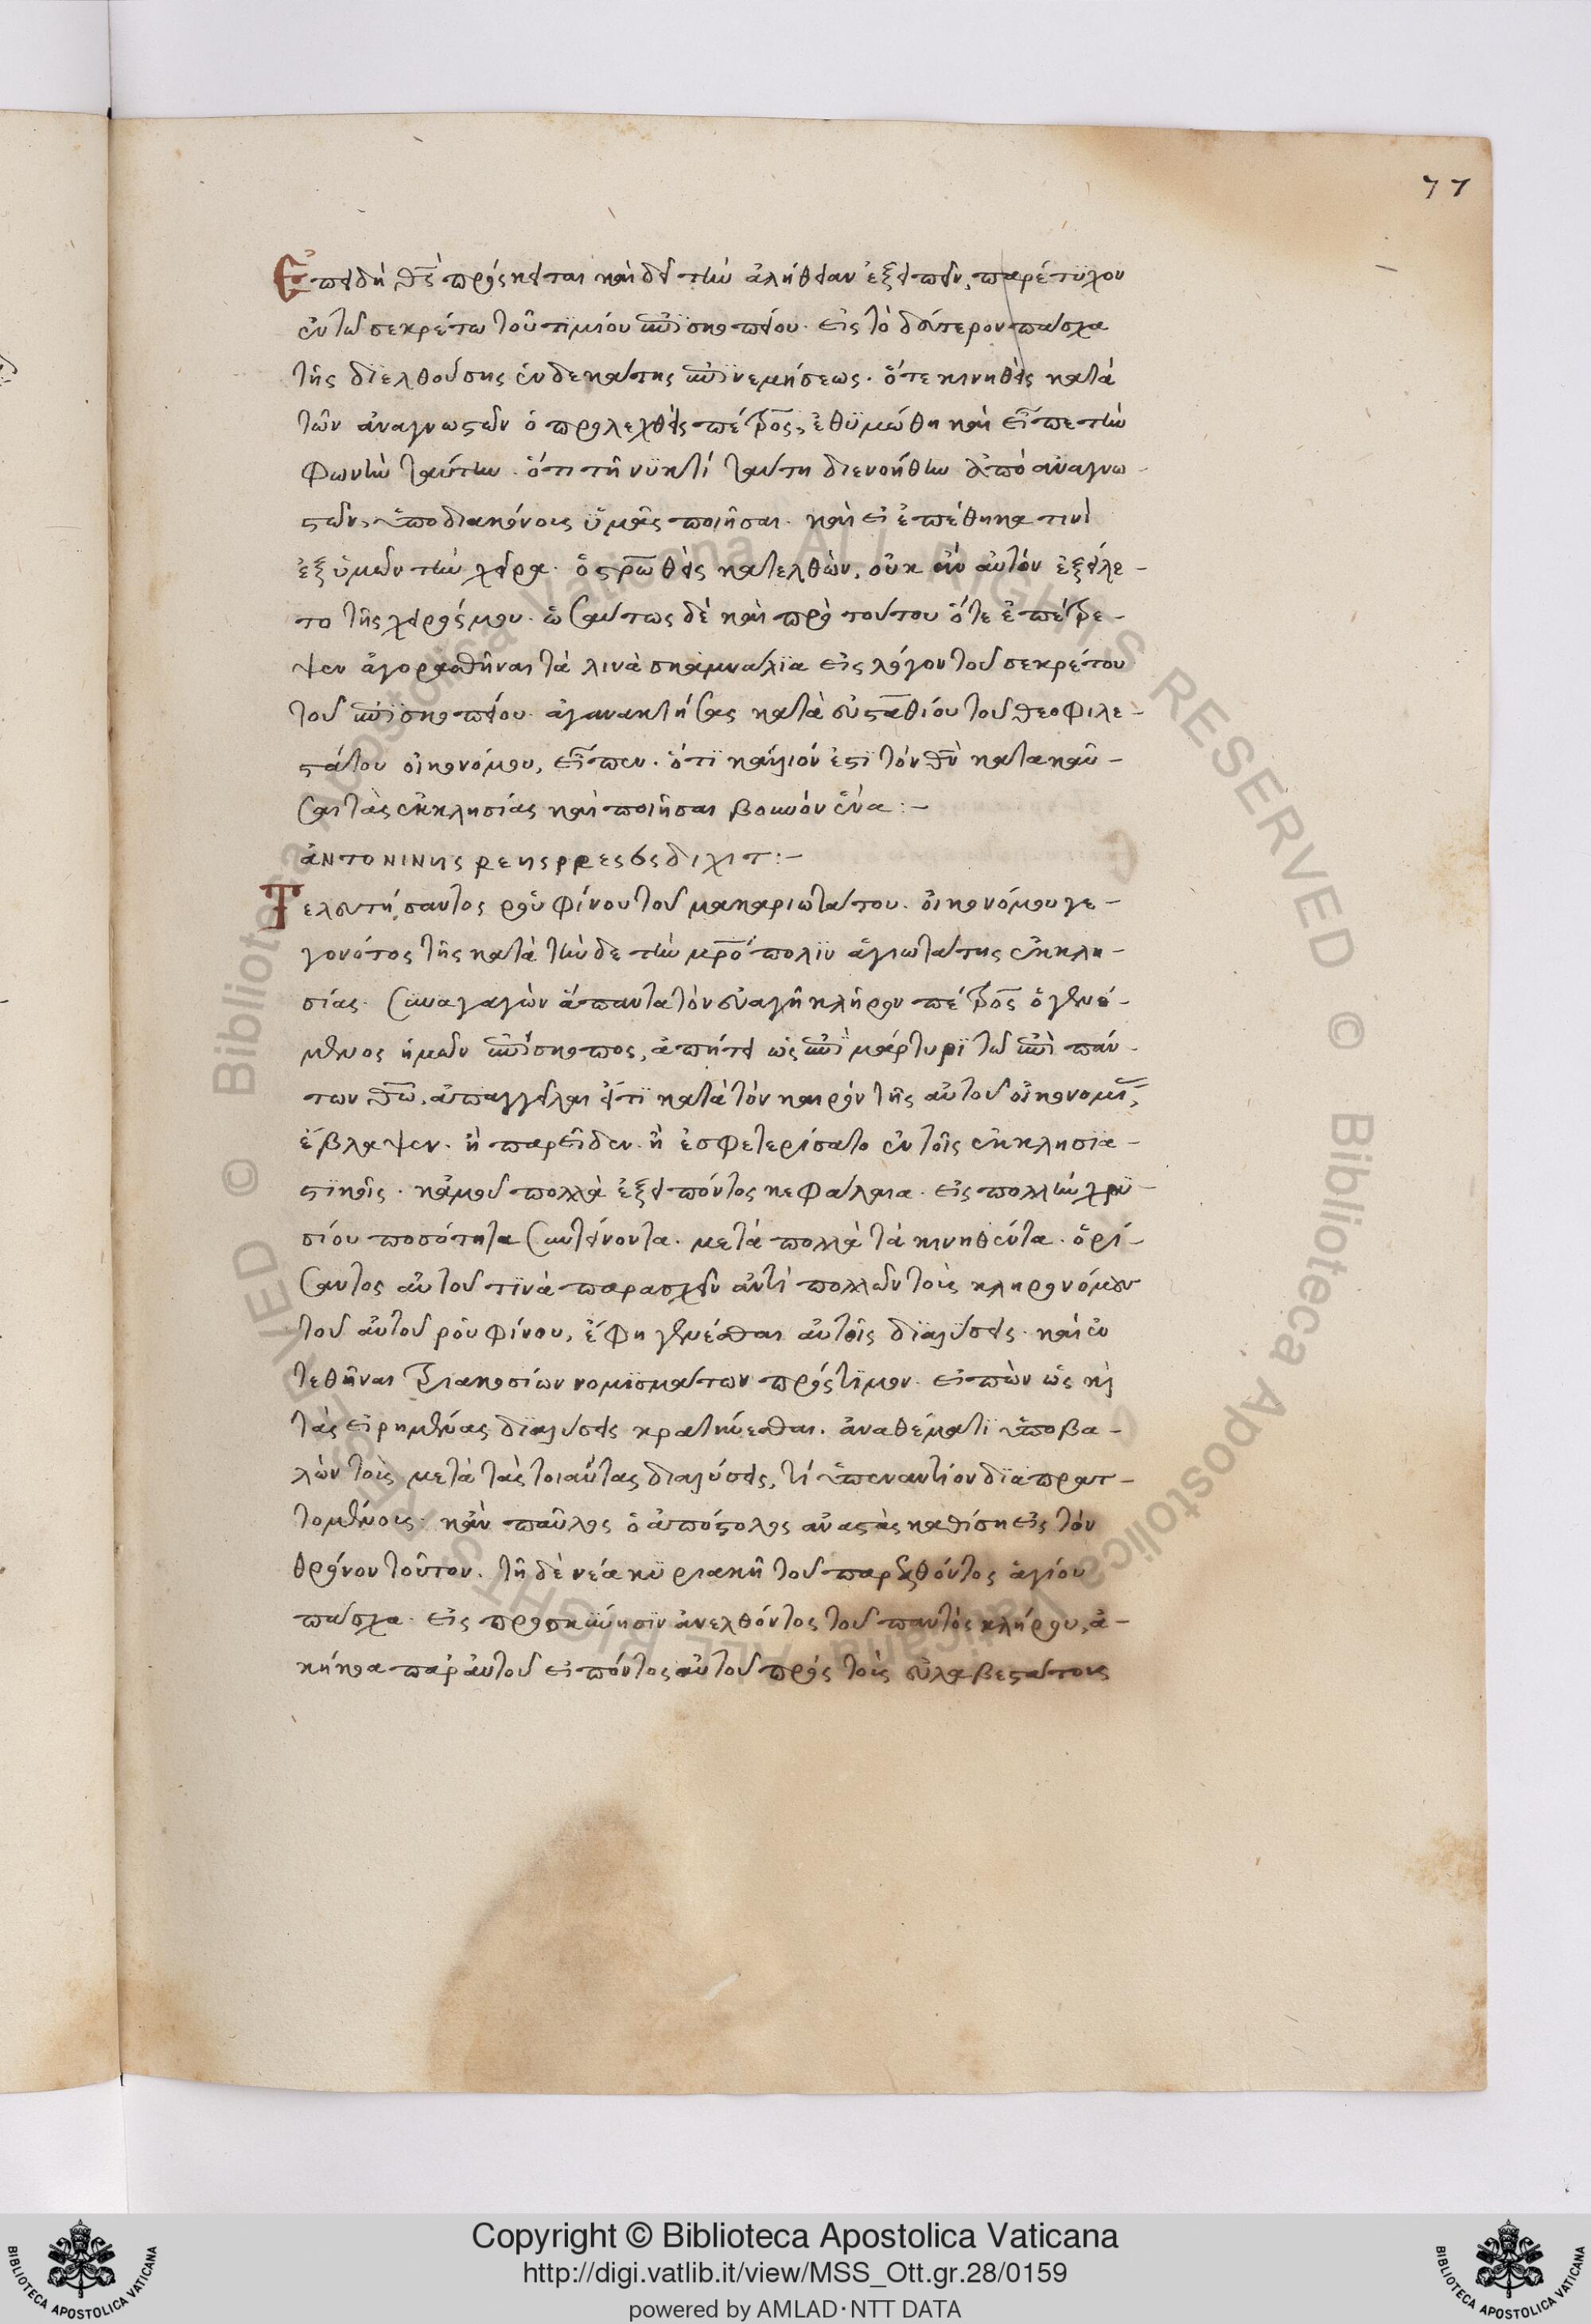 77
Ἐπειδὴ θς̅ πρόσκειται καὶ δεῖ τὴν ἀλήθειαν ἐξειπεῖν, παρέτυχον
ἐν τῶ σεκρέτω τοῦ τιμίου ἐπισκοπείου. εἰς τὸ δεύτερον πάσχα
τῆς διελθούσης ἑνδεκάτης ἐπινεμήσεως. ὅτε κινηθεὶς κατὰ
τῶν ἀναγνωστῶν ὁ προλεχθεὶς πέτρος, ἐθυμώθη καὶ εἶπε τὴν
φωνὴν ταύτην. ὅτι τῆ νυκτὶ ταύτη διενοήθην ἀπὸ ἀναγνω-
στῶν, ὑποδιακόνους ὑμᾶς ποιῆσαι. καὶ εἰ ἐπέθηκα τινὶ
ἐξ ὑμῶν τὴν χεῖρα. ὁ σρω̅θεὶς κατελθὼν, οὐκ ἂν αὐτὸν ἐξείλε-
το τῆς χειρός μου. ὡσαύτως δὲ καὶ πρὸ τούτου ὅτε ἐπέτρε-
ψεν ἀγορασθῆναι τὰ λινὰ σκάμναλια εἰς λόγον τοῦ σεκρέτου
τοῦ ἐπισκοπείου. ἀγανακτήσας κατὰ εὐσταθίου τοῦ θεοφιλε-
στάτου οἰκονόμου, εἶπεν. ὅτι κάλλιόν ἐστι τὸν θν̅ κατακαῦ-
σαι τὰς ἐκκλησίας καὶ ποιῆσαι βουνὸν ἕνα:-
ἀντονινης ρεης ρρεσϐς διχιτ:-
Τελευτήσαντος ῥουφίνου τοῦ μακαριωτάτου. οἰκονόμου γε-
γονότος τῆς κατὰ τήνδε τὴν μρο̅πολιν ἁγιωτάτης ἐκκλη-
σίας. συναγαγὼν ἅπαντα τὸν εὐαγῆ κλῆρον πέτρος ὁ γενό-
μενος ἡμῶν ἐπίσκοπος, ἀπήτει ὡς ἐπὶ μάρτυρι τῶ ἐπὶ πάν-
των θω̅, ἀπαγγεῖλαι εἴ τι κατὰ τὸν καιρὸν τῆς αὐτοῦ οἰκονομίας,
ἔβλαψεν. ἢ παρεῖδεν. ἢ ἐσφετερίσατο ἐν τοῖς ἐκκλησια-
στικοῖς. κἀμοῦ πολλὰ ἐξειπόντος κεφάλαια. εἰς πολλὴν χρυ-
σίου ποσότητα συντείνοντα. μετὰ πολλὰ τὰ κινηθέντα. ὁρί-
σαντος αὐτοῦ τινὰ παρασχεῖν ἀντὶ πολλῶν τοὺς κληρονόμους
τοῦ αὐτοῦ ῥουφίνου, ἔφη γενέσθαι αὐτοῖς διαλύσεις. καὶ ἐν
τεθῆναι τριακοσίων νομισμάτων πρόστιμον. εἰπὼν ὡς καὶ
τὰς εἰρημένας διαλύσεις κρατήνεσθαι. ἀναθέματι ὑποβα-
λὼν τοὺς μετὰ τὰς τοιαύτας διαλύσεις, τί ὑπεναντίον διαπρατ-
τομένους. κἂν παῦλος ὁ ἀπόστολος ἀναστὰς καθίση εἰς τὸν
θρόνον τοῦτον. τῆ δὲ νέα κυριακῆ τοῦ παρελθόντος ἁγίου
πάσχα. εἰς προσκύνησιν ἀνελθόντος τοῦ παντὸς κλήρου, ἀ-
κήκοα παρ αὐτοῦ εἰπόντος αὐτοῦ πρὸς τοὺς εὐλαβεστάτους
Copyright © Biblioteca Apostolica Vaticana
http://digi.vatlib.it/view/MSS_Ott.gr.28/0159
powered by AMLAD·NTT DATA